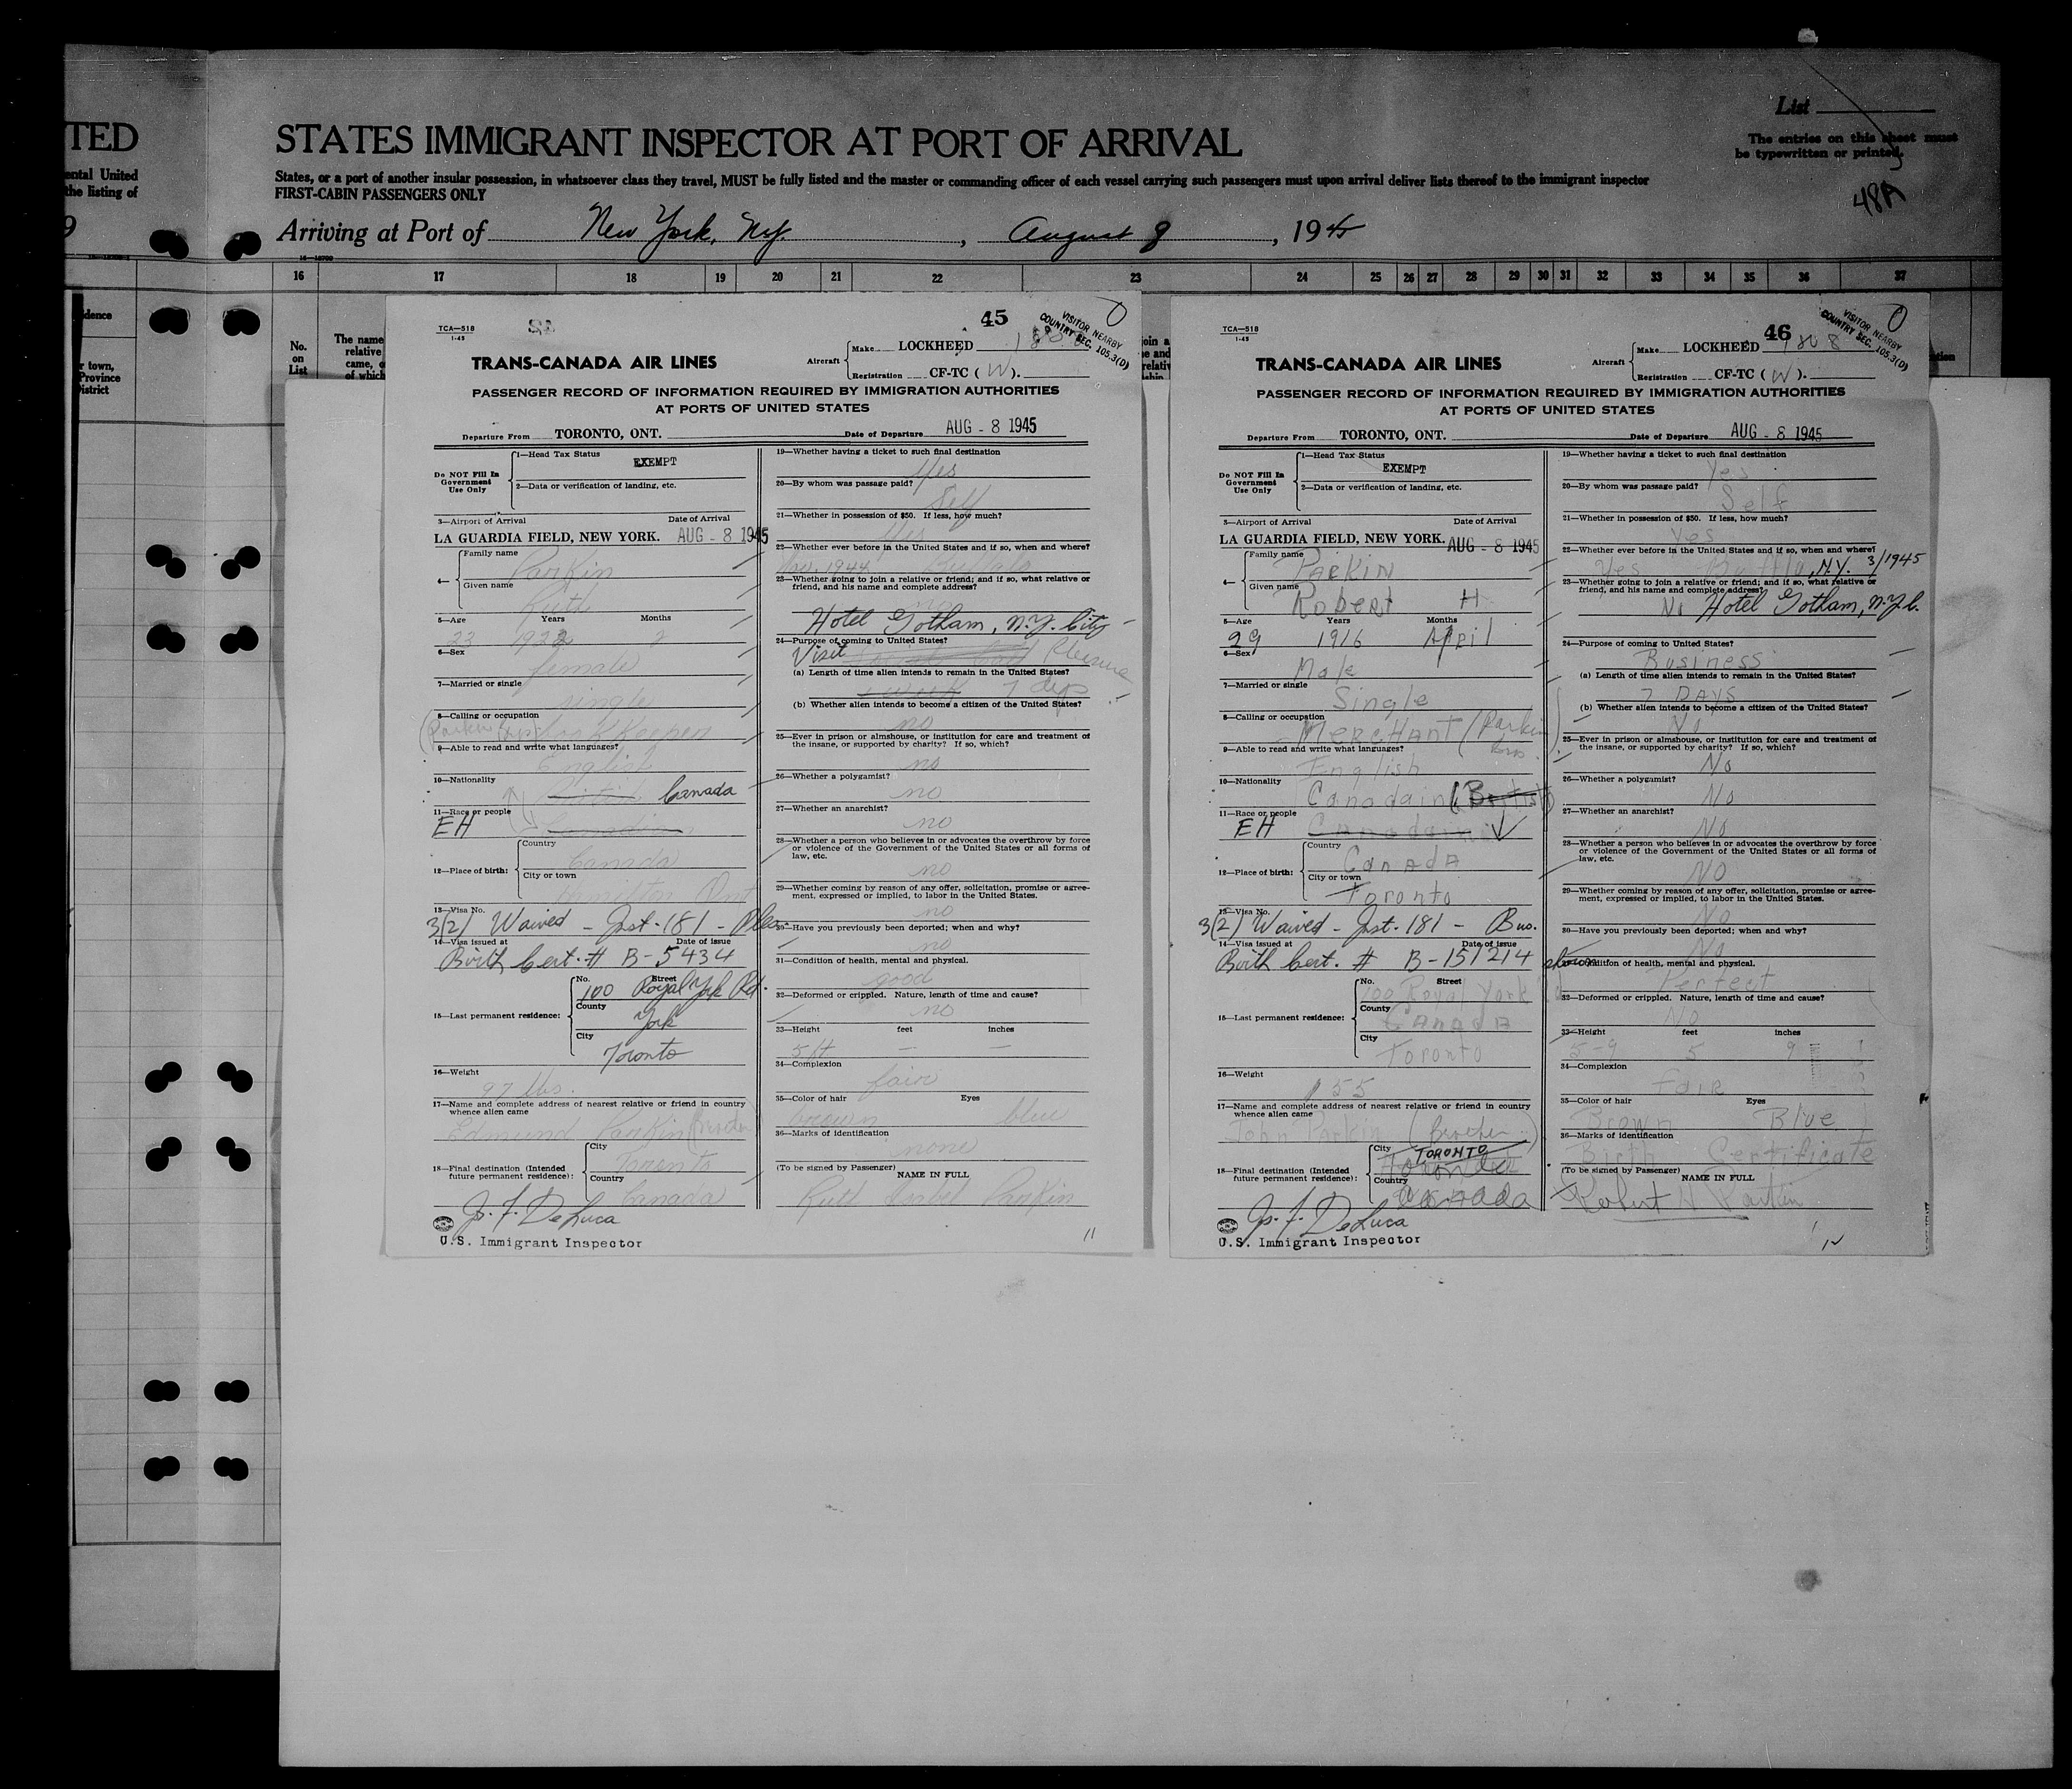 TED
ental United
the listing of
9
dence
r town,
Province
District
List
The entries on this sheet must
be typewritten or printed.
48A
STATES IMMIGRANT INSPECTOR AT PORT OF ARRIVAL
States, or a port of another insular possession, in whatsoever class they travel, MUST be fully listed and the master or commanding officer of each vessel carrying such passengers must upon arrival deliver lists thereof to the immigrant inspector
FIRST-CABIN PASSENGERS ONLY
Arriving at Port of New York, N.Y. , August 8 , 1945
16 17 18 19 20 21 22 23 24 25 26 27 28 29 30 31 32 33 34 35 36 37
No.
on
List
The name
relative
came, o
of which
TCA—518
1-45
45
VISITOR NEARBY
COUNTRY SEC. 105.3(D)
TRANS-CANADA AIR LINES
Aircraft
Make LOCKHEED
Registration CF-TC ( W ).
PASSENGER RECORD OF INFORMATION REQUIRED BY IMMIGRATION AUTHORITIES
AT PORTS OF UNITED STATES
Departure From TORONTO, ONT. Date of Departure AUG - 8 1945
Do NOT Fill In
Government
Use Only
1—Head Tax Status
EXEMPT
2—Data or verification of landing, etc.
3—Airport of Arrival Date of Arrival
LA GUARDIA FIELD, NEW YORK. AUG - 8 1945
4— Family name
Parkin
Given name
Ruth
5—Age Years Months
23 1922 2
6—Sex
female
7—Married or single
single
8—Calling or occupation
Bookkeeper
9—Able to read and write what languages?
English
10—Nationality
Canada
11—Race or people
EH Canadian
12—Place of birth:
Country
Canada
City or town
Hamilton Ont
13—Visa No.
3(2) Waived - Inst. 181 - Pleas.
14—Visa issued at Date of issue
Birth Cert. # B-5434
15—Last permanent residence:
No. Street
100 Royal York Rd.
County
York
City
Toronto
16—Weight
97 lbs.
17—Name and complete address of nearest relative or friend in country
whence alien came
Edmund Parkin
18—Final destination (Intended
future permanent residence):
City
Toronto
Country
Canada
Js. F. DeLuca
U.S. Immigrant Inspector
19—Whether having a ticket to such final destination
Yes
20—By whom was passage paid?
Self
21—Whether in possession of $50. If less, how much?
Yes
22—Whether ever before in the United States and if so, when and where?
1944 Buffalo
23—Whether going to join a relative or friend; and if so, what relative or
friend, and his name and complete address?
no
Hotel Gotham, N.Y. City
24—Purpose of coming to United States?
Visit Pleasure
(a) Length of time alien intends to remain in the United States?
1 week 7 dys
(b) Whether alien intends to become a citizen of the United States?
no
25—Ever in prison or almshouse, or institution for care and treatment of
the insane, or supported by charity? If so, which?
no
26—Whether a polygamist?
no
27—Whether an anarchist?
no
28—Whether a person who believes in or advocates the overthrow by force
or violence of the Government of the United States or all forms of
law, etc.
no
29—Whether coming by reason of any offer, solicitation, promise or agree-
ment, expressed or implied, to labor in the United States.
no
30—Have you previously been deported; when and why?
no
31—Condition of health, mental and physical.
good
32—Deformed or crippled. Nature, length of time and cause?
no
33—Height feet inches
5 ft — —
34—Complexion
fair
35—Color of hair Eyes
brown blue
36—Marks of identification
none
(To be signed by Passenger) NAME IN FULL
Ruth Isabel Parkin
11
TCA—518
1-45
46
1808
VISITOR NEARBY
COUNTRY SEC. 105.3(D)
TRANS-CANADA AIR LINES
Aircraft
Make LOCKHEED
Registration CF-TC ( W ).
PASSENGER RECORD OF INFORMATION REQUIRED BY IMMIGRATION AUTHORITIES
AT PORTS OF UNITED STATES
Departure From TORONTO, ONT. Date of Departure AUG - 8 1945
Do NOT Fill In
Government
Use Only
1—Head Tax Status
EXEMPT
2—Data or verification of landing, etc.
3—Airport of Arrival Date of Arrival
LA GUARDIA FIELD, NEW YORK. AUG - 8 1945
4— Family name
PARKIN
Given name
Robert H
5—Age Years Months
29 1916 April
6—Sex
Male
7—Married or single
Single
8—Calling or occupation
Merchant (Parkin
9—Able to read and write what languages?
English
10—Nationality
Canadain (British)
11—Race or people
EH Canadain
12—Place of birth:
Country
Canada
City or town
Toronto
13—Visa No.
3(2) Waived - Inst. 181 - Bus.
14—Visa issued at Date of issue
Birth Cert. # B-151214 shown
15—Last permanent residence:
No. Street
100 Royal York Rd
County
Canada
City
Toronto
16—Weight
155
17—Name and complete address of nearest relative or friend in country
whence alien came
John Parkin (Brother)
18—Final destination (Intended
future permanent residence):
City
TORONTO
Country
Canada
Js. F. DeLuca
U.S. Immigrant Inspector
19—Whether having a ticket to such final destination
Yes
20—By whom was passage paid?
Self
21—Whether in possession of $50. If less, how much?
Yes
22—Whether ever before in the United States and if so, when and where?
Yes Buffalo, N.Y. 3/1945
23—Whether going to join a relative or friend; and if so, what relative or
friend, and his name and complete address?
No Hotel Gotham, N.Y.C.
24—Purpose of coming to United States?
Business
(a) Length of time alien intends to remain in the United States?
7 DAYS
(b) Whether alien intends to become a citizen of the United States?
No
25—Ever in prison or almshouse, or institution for care and treatment of
the insane, or supported by charity? If so, which?
No
26—Whether a polygamist?
No
27—Whether an anarchist?
No
28—Whether a person who believes in or advocates the overthrow by force
or violence of the Government of the United States or all forms of
law, etc.
NO
29—Whether coming by reason of any offer, solicitation, promise or agree-
ment, expressed or implied, to labor in the United States.
No
30—Have you previously been deported; when and why?
No
31—Condition of health, mental and physical.
Perfect
32—Deformed or crippled. Nature, length of time and cause?
No
33—Height feet inches
5-9 5 9
34—Complexion
FAIR
35—Color of hair Eyes
Brown Blue
36—Marks of identification
Birth Certificate
(To be signed by Passenger) NAME IN FULL
Robert H Parkin
12